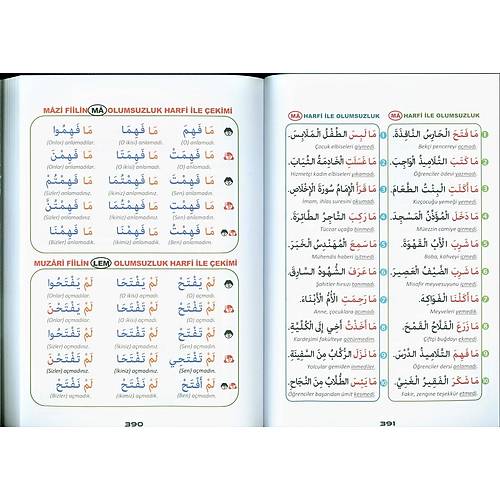 MÂZİ FİİLİN MÂ OLUMSUZLUK HARFİ İLE ÇEKİMİ
مَا فَهِمَ مَا فَهِمَا مَا فَهِمُوا
(O) anlamadı. (O ikisi) anlamadı. (Onlar) anlamadılar.
مَا فَهِمَتْ مَا فَهِمَتَا مَا فَهِمْنَ
(O) anlamadı. (O ikisi) anlamadı. (Onlar) anlamadılar.
مَا فَهِمْتَ مَا فَهِمْتُمَا مَا فَهِمْتُمْ
(Sen) anlamadın. (İkiniz) anlamadınız. (Sizler) anlamadınız.
مَا فَهِمْتِ مَا فَهِمْتُمَا مَا فَهِمْتُنَّ
(Sen) anlamadın. (İkiniz) anlamadınız. (Sizler) anlamadınız.
مَا فَهِمْتُ مَا فَهِمْنَا مَا فَهِمْنَا
MUZÂRİ FİİLİN LEM OLUMSUZLUK HARFİ İLE ÇEKİMİ
لَمْ يَفْتَحْ لَمْ يَفْتَحَا لَمْ يَفْتَحُوا
(O) açmadı. (O ikisi) açmadı. (Onlar) açmadılar.
لَمْ تَفْتَحْ لَمْ تَفْتَحَا لَمْ يَفْتَحْنَ
(O) açmadı. (O ikisi) açmadı. (Onlar) açmadılar.
لَمْ تَفْتَحْ لَمْ تَفْتَحَا لَمْ تَفْتَحُوا
(Sen) açmadın. (İkiniz) açmadınız. (Sizler) açmadınız.
لَمْ تَفْتَحِي لَمْ تَفْتَحَا لَمْ تَفْتَحْنَ
(Sen) açmadın. (İkiniz) açmadınız. (Sizler) açmadınız.
لَمْ أَفْتَحْ لَمْ نَفْتَحْ لَمْ نَفْتَحْ
390
MÂ HARFİ İLE OLUMSUZLUK
1 مَا فَتَحَ الْحَارِسُ النَّافِذَةَ.
Bekçi pencereyi açmadı.
2 مَا كَتَبَ التِّلْمِيذُ الْوَاجِبَ.
Öğrenciler ödevi yazmadı.
3 مَا أَكَلَتِ الْبِنْتُ الطَّعَامَ.
Kızçocuğu yemeği yemedi.
4 مَا دَخَلَ الْمُؤَذِّنُ الْمَسْجِدَ.
Müezzin camiye girmedi.
5 مَا شَرِبَ الْأَبُ الْقَهْوَةَ.
Baba, kahveyi içmedi.
6 مَا شَرِبَ الضَّيْفُ الْعَصِيرَ.
Misafir meyvesuyunu içmedi.
7 مَا أَكَلْنَا الْفَوَاكِهَ.
Meyveleri yemedik.
8 مَا زَرَعَ الْفَلَّاحُ الْقَمْحَ.
Çiftçi buğdayı ekmedi.
9 مَا فَهِمَ التِّلْمِيذُ الدَّرْسَ.
Öğrenciler dersi anlamadı.
10 مَا شَكَرَ الْفَقِيرُ الْغَنِيَّ.
Fakir, zengine teşekkür etmedi.
MÂ HARFİ İLE OLUMSUZLUK
1 مَا لَبِسَ الطِّفْلُ الْمَلَابِسَ.
Çocuk elbiseleri giymedi.
2 مَا غَسَلَتِ الْخَادِمَةُ الثِّيَابَ.
Hizmetçi kadın elbiseleri yıkamadı.
3 مَا قَرَأَ الْإِمَامُ سُورَةَ الْإِخْلَاصِ.
İmam, ihlas suresini okumadı.
4 مَا رَكِبَ التَّاجِرُ الطَّائِرَةَ.
Tüccar uçağa binmedi.
5 مَا سَمِعَ الْمُهَنْدِسُ الْخَبَرَ.
Mühendis haberi işitmedi.
6 مَا عَرَفَ الشُّهُودُ السَّارِقَ.
Şahitler hırsızı tanımadı.
7 مَا رَحِمَتِ الْأُمُّ الْأَبْنَاءَ.
Anne, çocuklara acımadı.
8 مَا أَخَذْتُ أَخِي إِلَى الْكُلِّيَّةِ.
Kardeşimi fakülteye götürmedim.
9 مَا نَزَلَ الرُّكَّابُ مِنَ السَّفِينَةِ.
Yolcular gemiden inmediler.
10 مَا يَئِسَ الطُّلَّابُ مِنَ النَّجَاحِ.
Öğrenciler başarıdan ümit kesmedi.
391